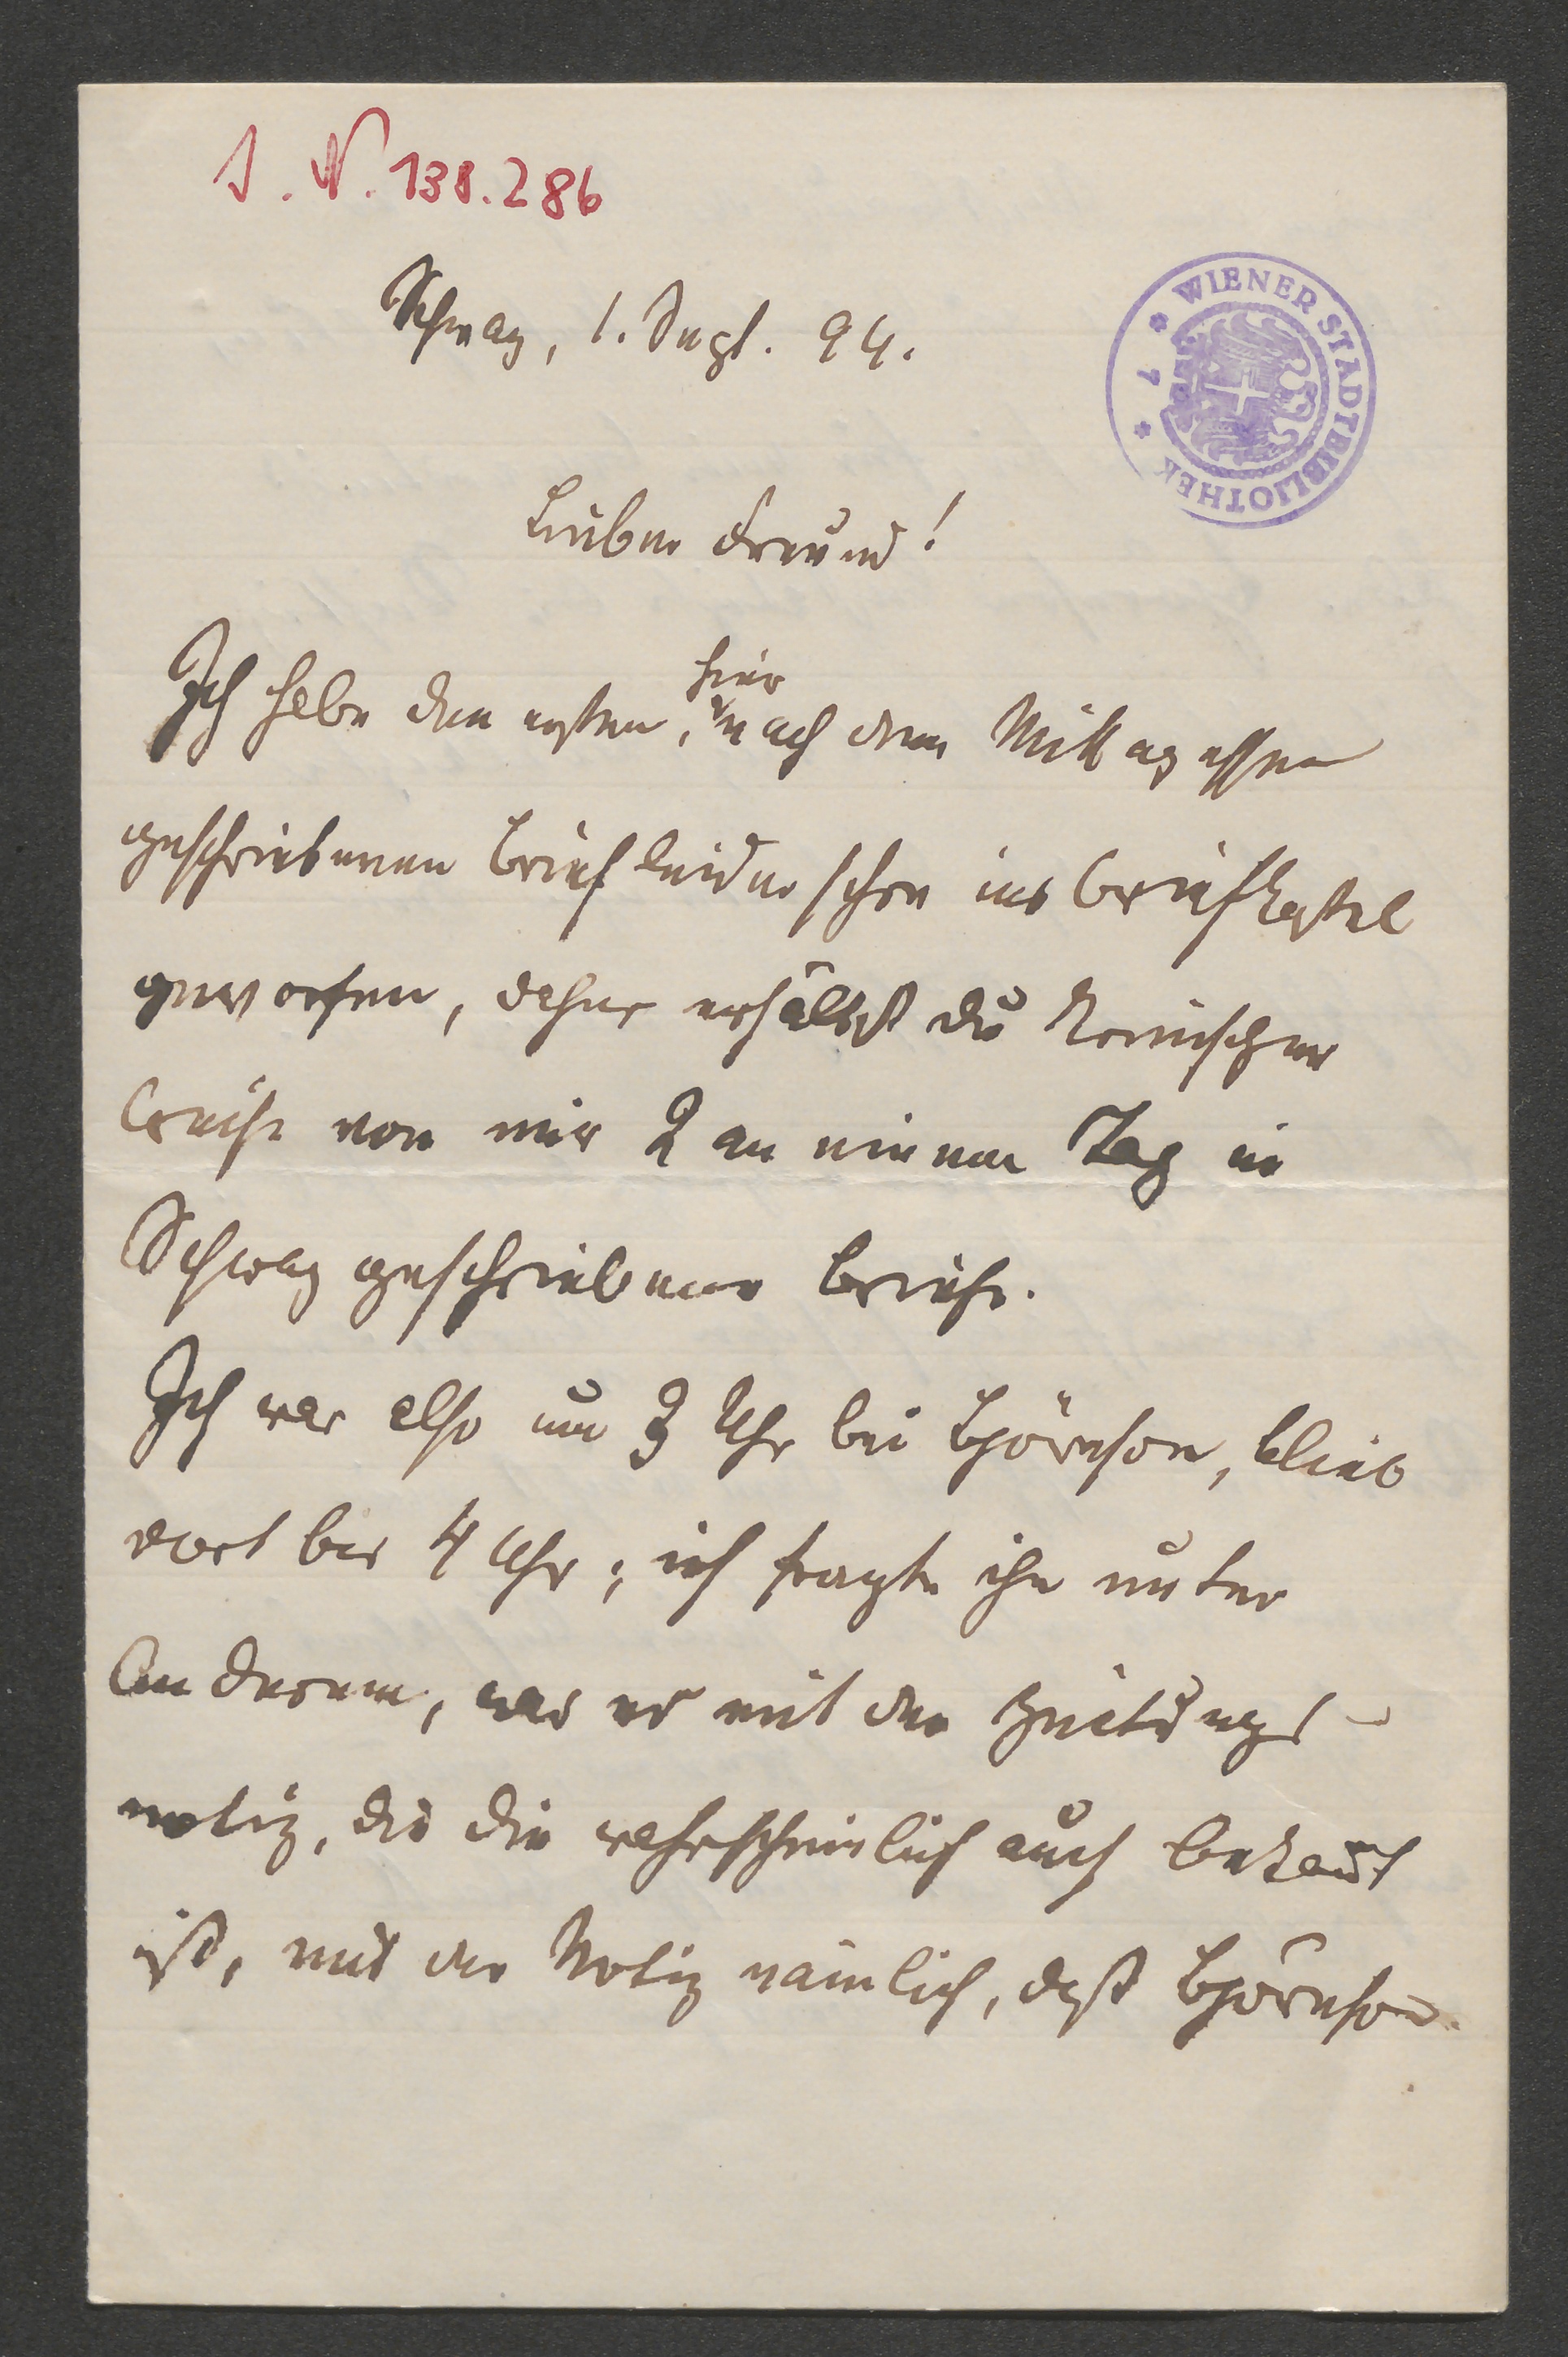 I. N. 138.286
WIENER STADTBIBLIOTHEK
* 7 *
Schwaz, 1. Sept. 94.
Lieber Freund!
hier
Ich habe den ersten, nach dem Mittagessen
geschriebenen Brief leider schon ins Briefkastel
geworfen, daher erhältst du komischer
Weise von mir 2 an einem Tag in
Schwaz geschriebene Briefe.
Ich war also um 3 Uhr bei Björnson, blieb
dort bis 4 Uhr; ich fragte ihn unter
Anderem, was es mit der Zeitungs-
notiz, die dir wahrscheinlich auch bekannt
ist, mit der Notiz nämlich, daß Björnson